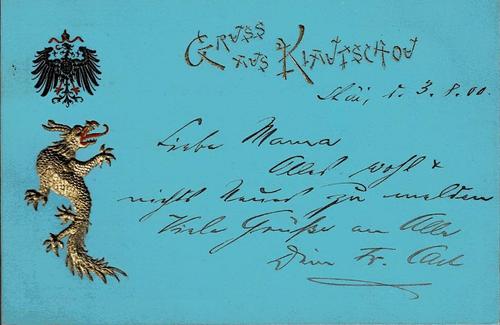 Gruss
aus Kiautschou
d. 3.8.00.
Liebe Mama
Alles wohl &
nichts Neues zu melden
Viele Grüße an Alle
Dein Fr.